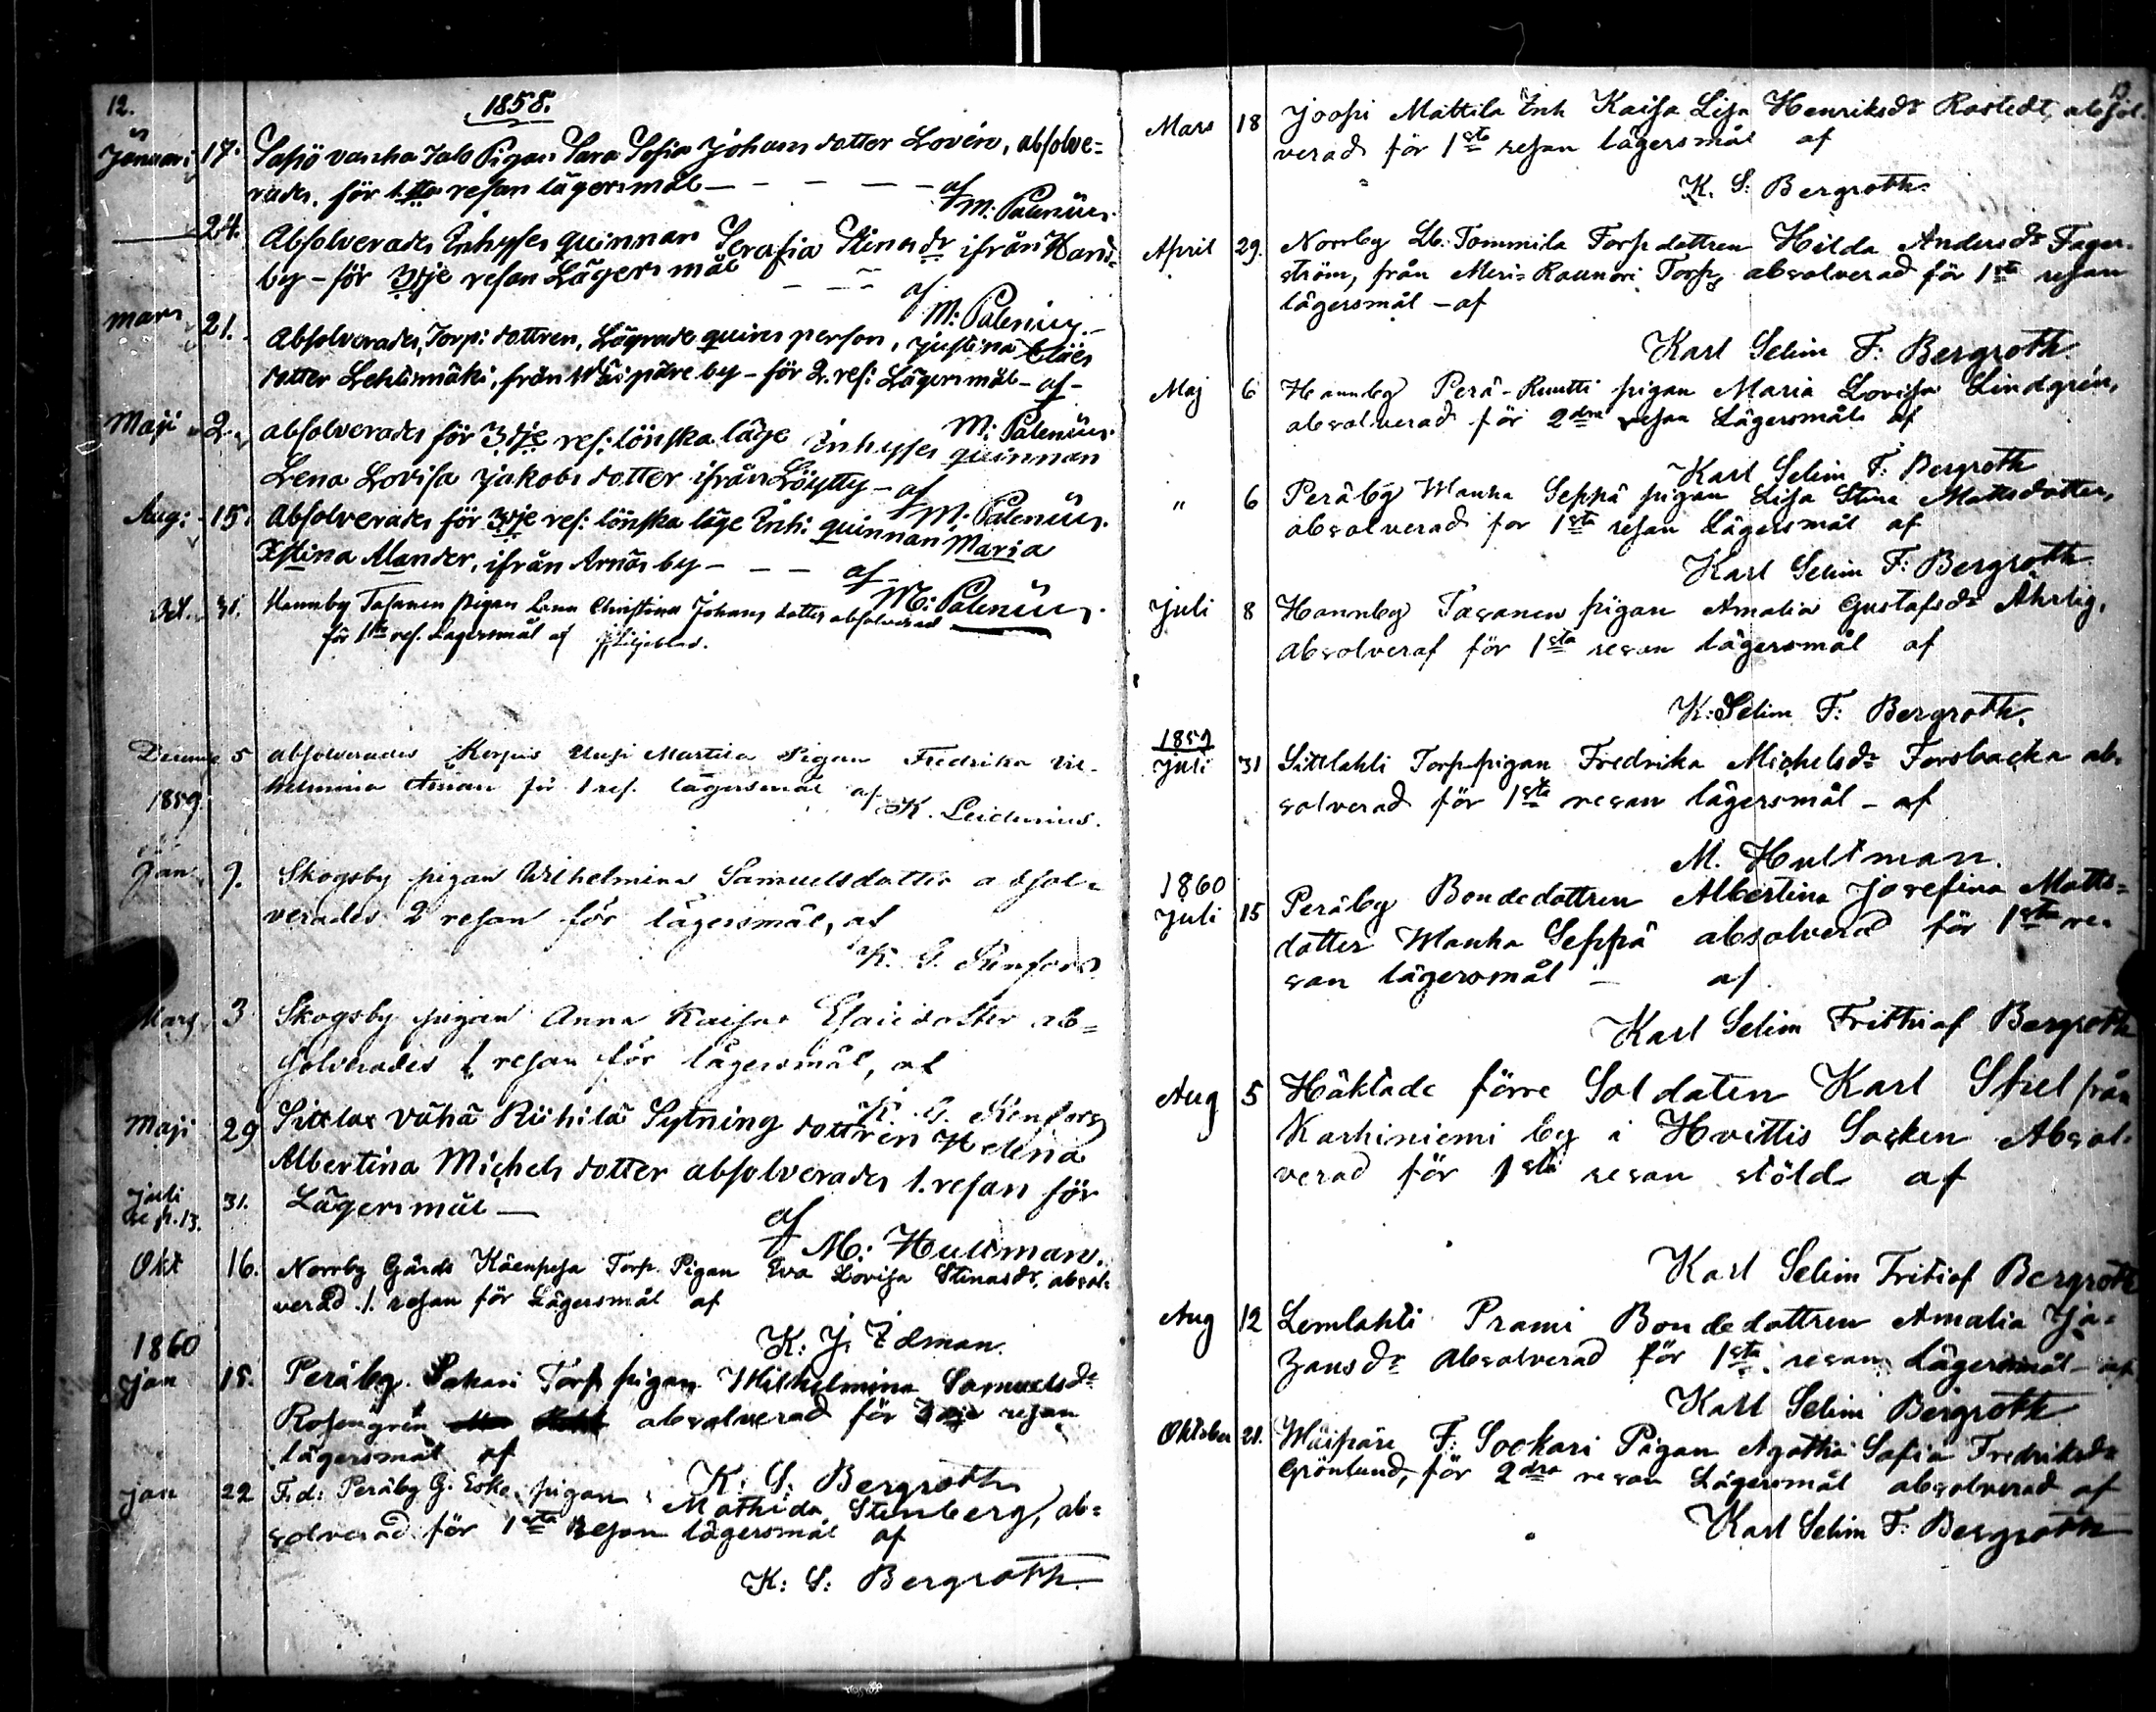 12.
1858.
Januari 17. Sapö vanha Talo Pigan Sara Sofia Johans dotter Lovén, absolve=
rades, för 1sta resan lägersmål — — — — af
M: Palenius.
24. Absolverades Inhyses quinnan Serafia Stinasdr ifrån Kari-
by – för 3dje resan Lägersmål — — af
M: Palenius.
mars 21. Absolverades, Torp: dottren, Lägrade quines person, Justina
dotter Lehtimäki, från by – för 2. res: Lägersmål – af –
M: Palenius.
Maji 2. absolverades för 3dje res: lönska läge Inhyses quinnan
Lena Lovisa Jakobs dotter ifrån Löytty – af
M: Palenius.
Aug: 15. Absolverades för 3dje res: lönska läge Inh: quinnan Maria
Xstina Alander, ifrån Arnäs by – — — af –
M: Palenius.
Oct. 31. Hannby Tasanen Pigan Lena Christina Johans dotter absolverad
för 1sta res. Lägersmål af Liljeblad.
5 absolverades Martila Pigan Fredrika Vil-
helmina för 1 res. lägersmål af
K. Leidenius.
1859.
Jan. 9. Skogsby pigan Wilhelmina Samuelsdotter absol=
verades 2 resan för lägersmål, af
K. G.
Mars 3 Skogsby pigan Anna Kaisa Esaiedotter ab=
solverades 1 resan för lägersmål, af
K. G.
Maji 29 Sittlax Vähä Riihilä Sytning dottren Helena
Albertina Michels dotter absolverades 1. resan för
Juli 31. Lägersmål —
Sep. 13.
af
M: Hultman.
Okt 16. Norrby Gårds Käenpesä Torp. Pigan Eva Lovisa Stinasdr. absol-
verad 1. resan för Lägersmål af
K. J. Idman.
1860
Jan 15. Peräby Sakari Torp pigan Wilhelmina Samuelsdr
Rosengrén absolverad för 3dje resan
lägersmål af
K: S: Bergroth
Jan 22 F.d: Peräby G. Eske pigan Mathilda Stenberg, ab=
solverad för 1sta Resan lägersmål af
K: S: Bergroth
13
Mars 18 Joopi Mattila Inh Kaisa Lisa Henriksdr Rostedt, absol-
verad för 1sta resan lägersmål af
K. S: Bergroth.
April 29. Norrby Lb. Tommila Torpdottren Hilda Andersdr Fager-
ström, från Meri-Raunori Torp, absolverad för 1sta resan
lägersmål – af
Karl Selim F: Bergroth
Maj 6 Hannby Perä-Ruutti pigan Maria Lovisa Lindgrén,
absolverad för 2dra resan Lägersmål af
Karl Selim F: Bergroth
" 6 Peräby Wanha Seppä pigan Lisa Stina Mattsdotter,
absolverad for 1sta resan Lägersmål af
Karl Selim F: Bergroth.
Juli 8 Hannby Tasanen pigan Amalia Gustafsdr Ahrlig,
absolveraf för 1sta resan lägersmål af
K: Selim F: Bergroth.
1859
Juli 31 Sittlahti Torppigan Fredrika Michelsdr Forsbacka ab-
solverad för 1sta resan lägersmål – af
M. Hultman.
1860
Juli 15 Peräby Bondedottren Albertina Josefina Matts=
dotter Wanha Seppä absolverad för 1sta re-
san lägersmål — af
Karl Selim Frithiof Bergroth
Aug 5 Häktade förre Soldaten Karl Spel från
Karhiniemi by i Hvittis Socken Absol-
verad för 1sta resan stöld af
Karl Selim Fritiof Bergroth
Aug 12 Lemlahti Prami Bondedottren Amalia Ja-
zansdr Absolverad för 1sta resan Lägersmål – af
Karl Selim Bergroth
Oktober 21. Wäipäre F: Sookari Pigan Agatha Sofia Fredriksdr
Grönlund, för 2dra resan Lägersmål absolverad af
Karl Selim F: Bergroth